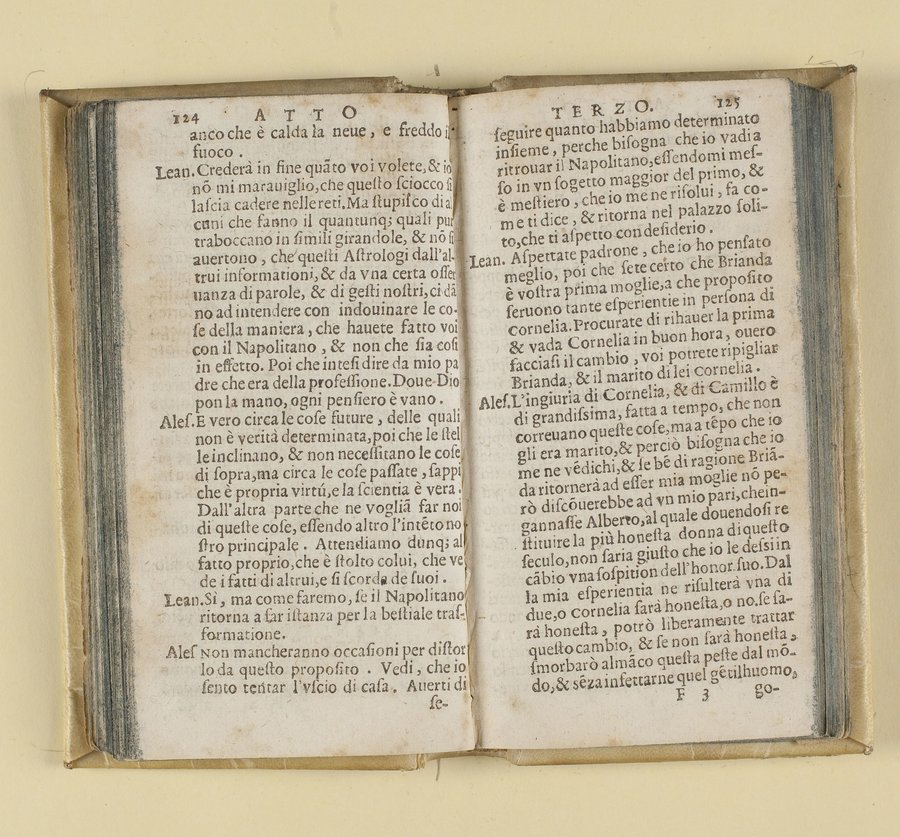 124 ATTO
anco che è calda la neue, e freddo il
fuoco.
Lean. Crederà in fine quãto voi volete, & io
nõ mi marauiglio, che questo sciocco si
lascia cadere nelle reti. Ma stupisco di al
cuni che fanno il quantunq; quali pur
traboccano in simili girandole, & nõ si
auertono, che questi Astrologi dall'al-
trui informationi, & da vna certa osser
uanza di parole, & di gesti nostri, ci dã
no ad intendere con indouinare le co-
se della maniera, che hauete fatto voi
con il Napolitano, & non che sia cosi
in effetto. Poi che intesi dire da mio pa
dre che era della professione. Doue Dio
pon la mano, ogni pensiero è vano.
Ales. E vero circa le cose future, delle quali
non è verità determinata, poi che le stel
le inclinano, & non necessitano le cose
di sopra, ma circa le cose passate, sappi
che è propria virtú, e la scientia è vera.
Dall'altra parte che ne vogliã far noi
di queste cose, essendo altro l'intẽto no
stro principale. Attendiamo dunq; al
fatto proprio, che è stolto colui, che ve
de i fatti di altrui, e si scorda de suoi.
Lean. Si, ma come faremo, se il Napolitano
ritorna a far istanza per la bestiale tras-
formatione.
Ales Non mancheranno occasioni per distor
lo da questo proposito. Vedi, che io
sento tentar l'vscio di casa. Auerti di
se-
TERZO. 125
seguire quanto habbiamo determinato
insieme, perche bisogna che io vadi a
ritrouar il Napolitano, essendomi mes-
so in vn sogetto maggior del primo, &
è mestiero, che io me ne risolui, fa co-
me ti dice, & ritorna nel palazzo soli-
to, che ti aspetto con desiderio.
Lean. Aspettate padrone, che io ho pensato
meglio, poi che sete certo che Brianda
è vostra prima moglie, a che proposito
seruono tante esperientie in persona di
Cornelia. Procurate di rihauer la prima
& vada Cornelia in buon hora, ouero
facciasi il cambio, voi potrete ripigliar
Brianda, & il marito di lei Cornelia.
Ales. L'ingiuria di Cornelia, & di Camillo è
di grandissima, fatta a tempo, che non
correuano queste cose, ma a tẽpo che io
gli era marito, & perciò bisogna che io
me ne vẽdichi, & se bẽ di ragione Briã-
da ritornerà ad esser mia moglie nõ pe-
rò discõuerebbe ad vn mio pari, che in-
gannasse Alberto, al quale douendosi re
stituire la più honesta donna di questo
seculo, non saria giusto che io le dessi in
cãbio vna sospition dell'honor suo. Dal
la mia esperientia ne risulterà vna di
due, o Cornelia sarà honesta, o no. se sa-
rà honesta, potrò liberamente trattar
questo cambio, & se non sarà honesta,
smorbarò almãco questa peste dal mõ-
do, & sẽza infettarne quel gẽtilhuomo,
F 3 go-